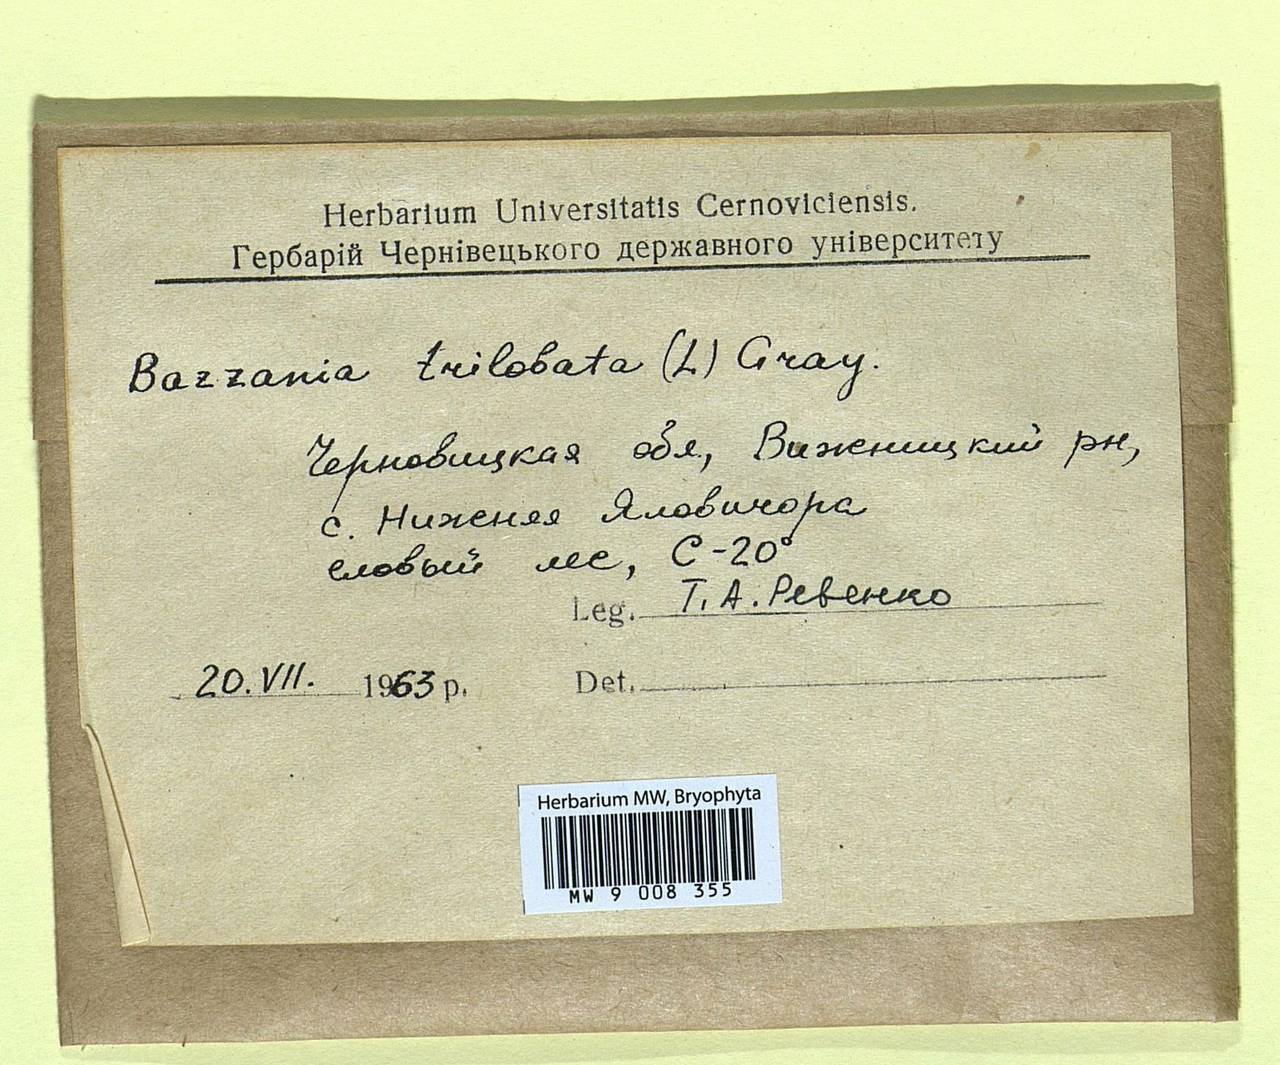 Herbarium Universitatis Cernoviciensis.
Гербарій Чернівецького державного університету
Bazzania trilobata (L) Gray.
Черновицкая обл, Вижницкий рн,
с. Нижняя Яловичора
еловый лес, С-20°
Leg. Т.А.Ревенко
20.VII. 1963 р. Det.
Herbarium MW, Bryophyta
MW 9 008 355